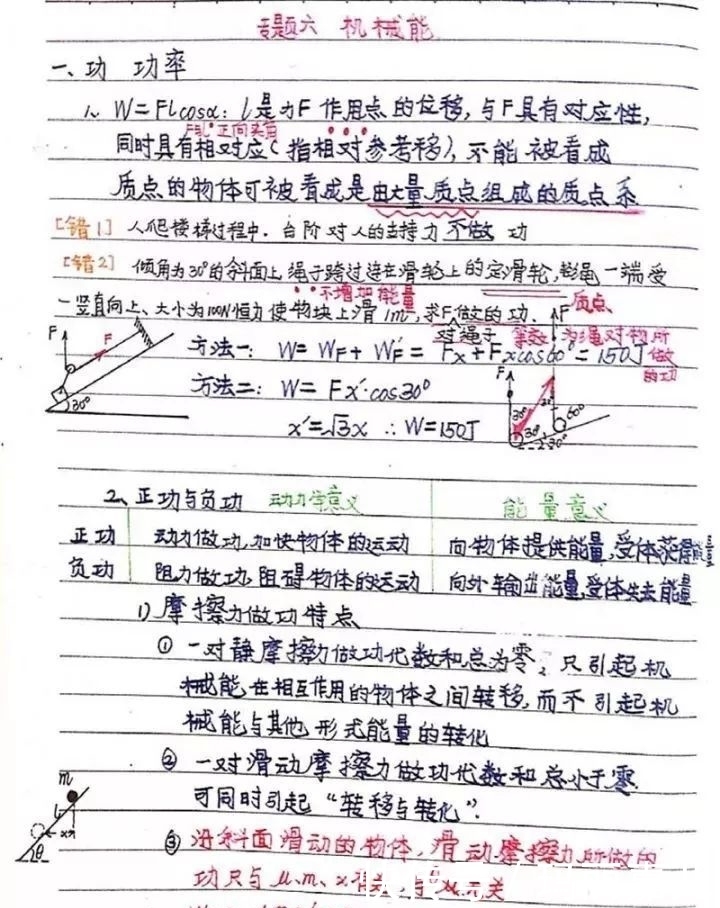 专题六 机械能
一、功 功率
1、W=Flcosα: l是力F作用点的位移,与F具有对应性,
F与l正向夹角
同时具有相对应(指相对参考移),不能被看成
质点的物体可被看成是由大量质点组成的质点系
[错1] 人爬楼梯过程中,台阶对人的支持力不做功
[错2] 倾角为30°的斜面上,绳子跨过连在滑轮上的定滑轮,绳一端受
不增加能量
质点
一竖直向上、大小为100N恒力使物块上滑1m,求F做的功.
对绳子 等效 为绳对物所做的功
方法一: W=WF+WF'=Fx+Fxcos60°=150J
方法二: W=Fx'·cos30°
x'=√3x ∴W=150J
F F 30°
F F 30° 30° 60° 30°
2、正功与负功 动力学意义 能量意义
正功 动力做功,加快物体的运动 向物体提供能量,受体获得能量
负功 阻力做功,阻碍物体的运动 向外输出能量,受体失去能量
1)摩擦力做功特点
① 一对静摩擦力做功代数和总为零,只引起机
械能在相互作用的物体之间转移,而不引起机
械能与其他形式能量的转化
② 一对滑动摩擦力做功代数和总小于零
可同时引起“转移与转化”.
m l x θ
③ 沿斜面滑动的物体,滑动摩擦力所做的
功只与μ.m、x